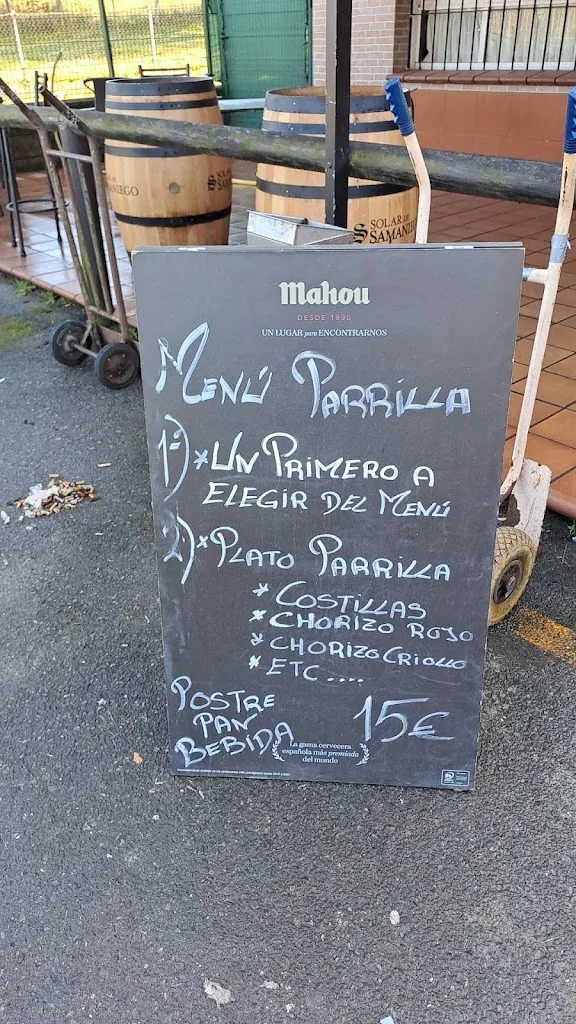 SOLAR DE
SAMANIEGO
Mahou
DESDE 1890
UN LUGAR para ENCONTRARNOS
MENÚ PARRILLA
1º) * UN PRIMERO A
ELEGIR DEL MENÚ
2.) * PLATO PARRILLA
* COSTILLAS
* CHORIZO ROJO
* CHORIZO CRIOLLO
* ETC....
POSTRE
PAN
BEBIDA
15€
La gama cervecera
española más premiada
del mundo